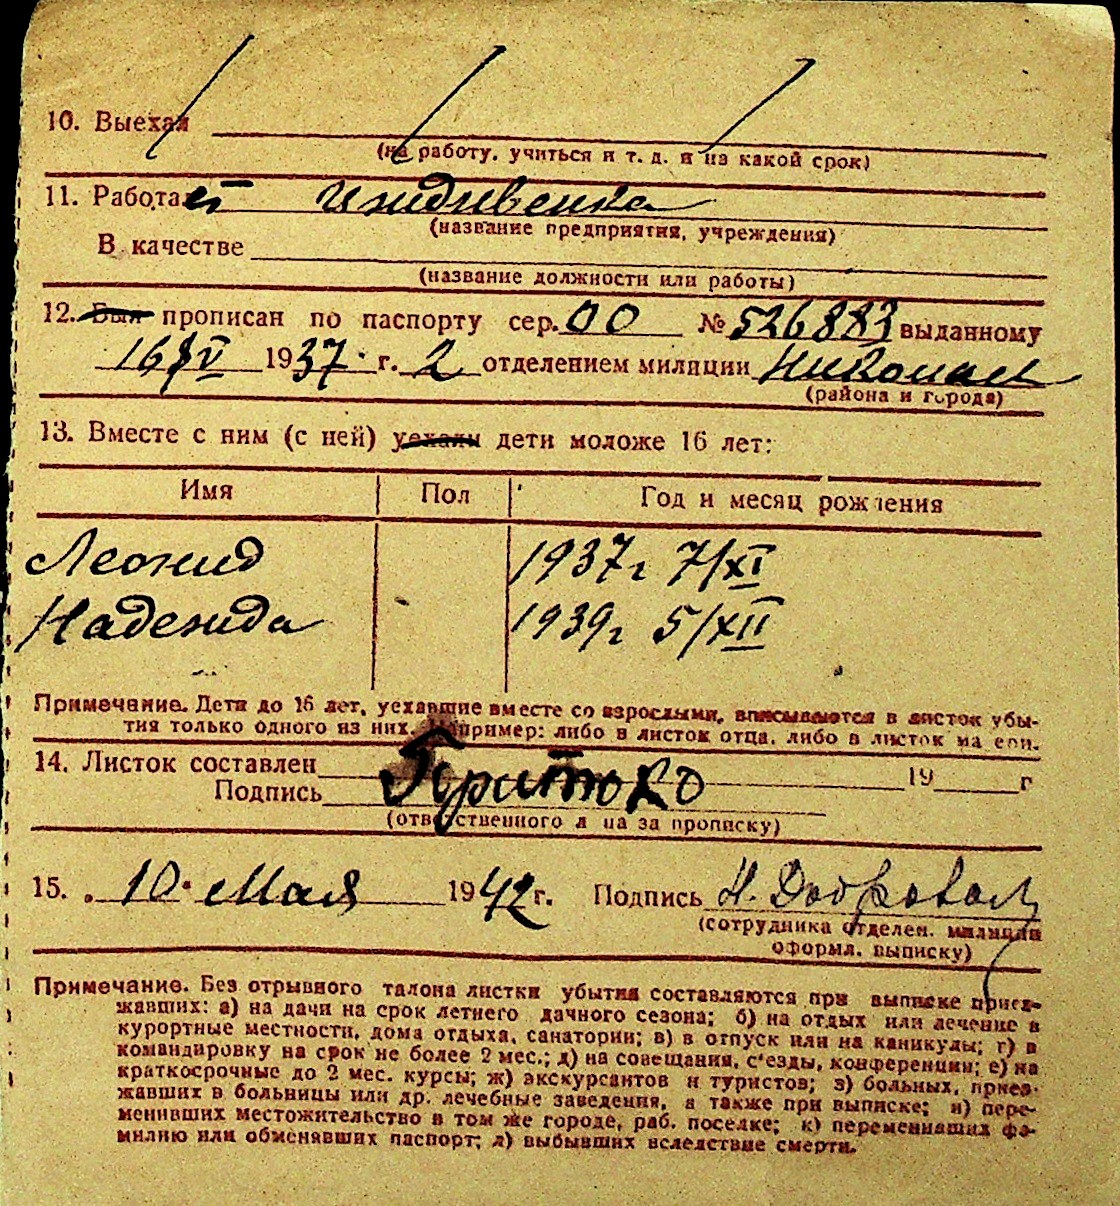 10. Выехал
(на работу, учиться и т. д. и на какой срок)
11. Работает Иждивенка
(название предприятия, учреждения)
В качестве
(название должности или работы)
12. Был прописан по паспорту сер. ОО № 526883 выданному
16/IV 1937 г. 2 отделением милиции Николаев
(района и города)
13. Вместе с ним (с ней) уехали дети моложе 16 лет:
Имя Пол Год и месяц рождения
Леонид 1937 г 7/XI
Надежда 1939 г 5/XII
Примечание. Дети до 16 лет, уехавшие вместе со взрослыми, вписываются в листок убы-
тия только одного из них. Например: либо в листок отца, либо в листок матери.
14. Листок составлен 19 г
Подпись
(ответственного лица за прописку)
15. „ 10. Мая 1942 г. Подпись Н. Добровол
(сотрудника отделен. милиции
оформл. выписку)
Примечание. Без отрывного талона листки убытия составляются при выписке приез-
жавших: а) на дачи на срок летнего дачного сезона; б) на отдых или лечение в
курортные местности, дома отдыха, санатории; в) в отпуск или на каникулы; г) в
командировку на срок не более 2 мес.; д) на совещания, с'езды, конференции; е) на
краткосрочные до 2 мес. курсы; ж) экскурсантов и туристов; з) больных, приез-
жавших в больницы или др. лечебные заведения, а также при выписке; и) пере-
менивших местожительство в том же городе, раб. поселке; к) переменивших фа-
милию или обменявших паспорт; л) выбывших вследствие смерти.